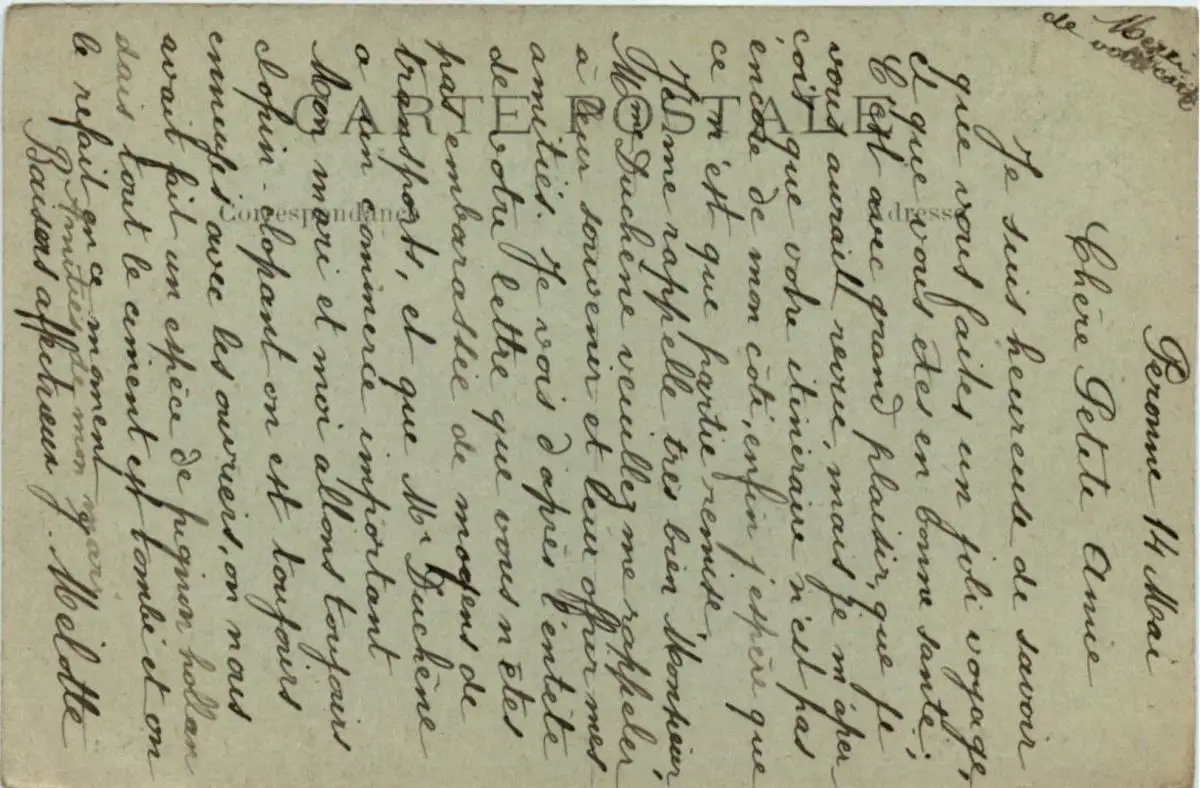 Merci
de votre carte
Peronne 14 Mai
Chère Petite Amie
Je suis heureuse de savoir
que vous faites un joli voyage,
et que vous êtes en bonne santé;
C'est avec grand plaisir, que je
vous aurait revue, mais je m'aper
çois que votre itinéraire n'est pas
encore de mon côté, enfin j'espère que
ce n'est que partie remise.
Je me rappelle très bien Monsieur,
Mme Duchêne veuillez me rappeler
à leur souvenir et leur offrir mes
amitiés. Je vois d'après l'entête
de votre lettre que vous n'êtes
pas embarassée de moyens de
transports, et que Mr Duchêne
a un commerce important
Mon mari et moi allons toujours
clopin-clopant on est toujours
ennuyés avec les ouvriers, on nous
avait fait un espèce de pignon hollan
dais tout le ciment est tombé et on
le refait en ce moment
Amitiés de mon mari
Baisers affectueux. Melotte
CARTE POSTALE
Correspondance
Adresse